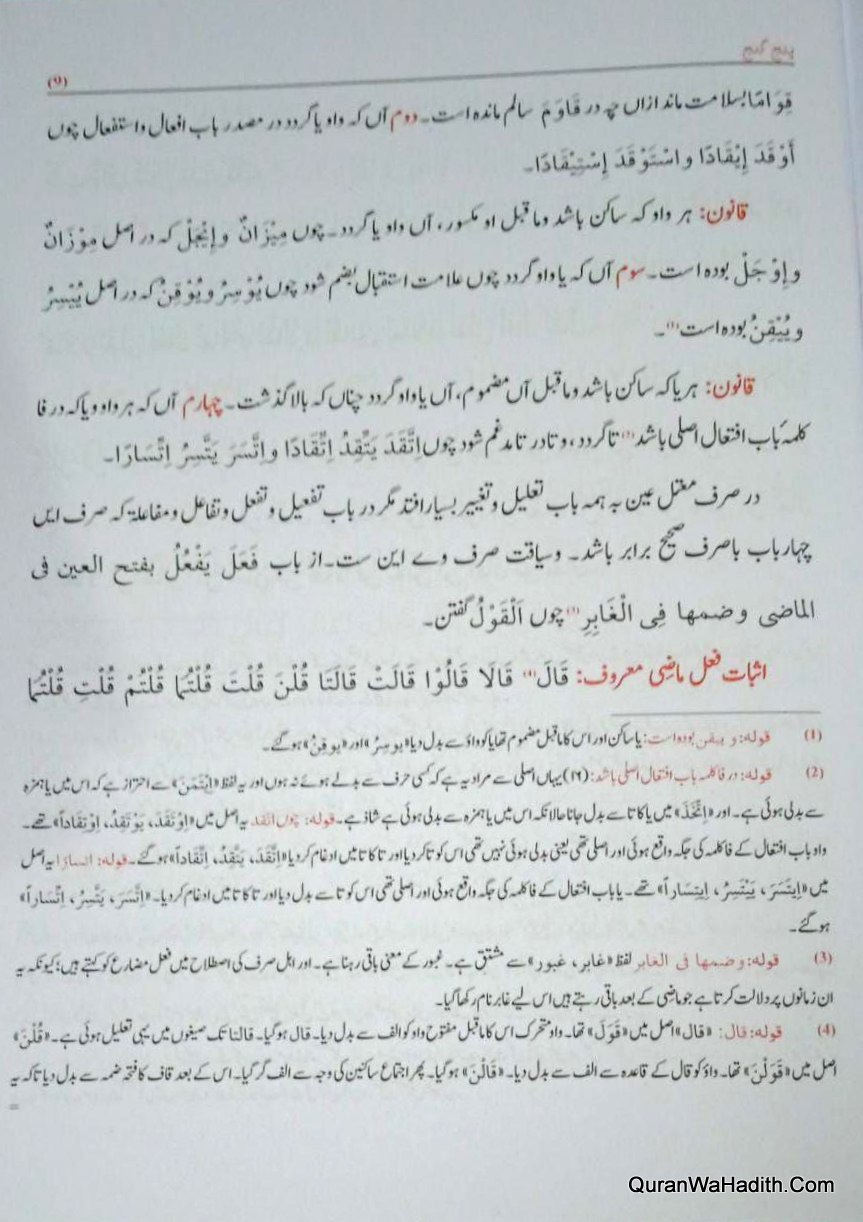 پنج گنج
(9)
قِوَامًا بسلامت ماند ازاں چہ در قَاوَمَ سالم ماندہ است۔ دوم آں کہ واو یا گردد در مصدر باب افعال واستفعال چوں
أَوْقَدَ إِيْقَادًا و اسْتَوْقَدَ إِسْتِيْقَادًا۔
قانون: ہر واو کہ ساکن باشد وما قبل او مکسور، آں واو یا گردد۔ چوں مِيْزَانٌ و إِيْجَلْ کہ در اصل مِوْزَانٌ
و إِوْجَلْ بودہ است۔ سوم آں کہ یا واو گردد چوں علامت استقبال بضم شود چوں يُوْسِرُ و يُوْقِنُ کہ در اصل يُيْسِرُ
و يُيْقِنُ بودہ است(۱)۔
قانون: ہر یا کہ ساکن باشد وما قبل آں مضموم، آں یا واو گردد چناں کہ بالا گذشت۔ چہارم آں کہ ہر واو ویا کہ در فا
کلمۂ باب افتعال اصلی باشد(۲) تا گردد، و تا در تا مدغم شود چوں اِتَّقَدَ يَتَّقِدُ اِتِّقَادًا و اِتَّسَرَ يَتَّسِرُ اِتِّسَارًا۔
در صرف معتل عین بہ ہمہ باب تعلیل و تغییر بسیار افتد مگر در باب تفعیل و تفعل و تفاعل و مفاعلۃ کہ صرف ایں
چہار باب با صرف صحیح برابر باشد۔ وسیاقت صرف وے این ست۔ از باب فَعَلَ يَفْعُلُ بفتح العین فی
الماضی وضمھا فِی الْغَابِرِ(۳) چوں اَلْقَوْلُ گفتن۔
اثبات فعل ماضِی معروف: قَالَ(۴) قَالَا قَالُوْا قَالَتْ قَالَتَا قُلْنَ قُلْتَ قُلْتُمَا قُلْتُمْ قُلْتِ قُلْتُمَا
(1) قولہ: و ییقن بودہ است: یا ساکن اور اس کا ماقبل مضموم تھا یا کو واؤ سے بدل دیا «يوسِرُ» اور «يوقِنُ» ہو گئے۔
(2) قولہ: در فا کلمہ باب افتعال اصلی باشد: (۱۶) یہاں اصلی سے مراد یہ ہے کہ کسی حرف سے بدلے ہوئے نہ ہوں اور یہ لفظ «اِيْتَمَنَ» سے احتراز ہے کہ اس میں یا ہمزہ
سے بدلی ہوئی ہے۔ اور «اِتَّخَذَ» میں یا کا تا سے بدل جانا حالانکہ اس میں یا ہمزہ سے بدلی ہوئی ہے شاذ ہے۔ قولہ: چوں اتقد یہ اصل میں «اِوْتَقَدَ، يَوْتَقِدُ، اِوْتِقاداً» تھے۔
واو باب افتعال کے فا کلمہ کی جگہ واقع ہوئی اور اصلی تھی یعنی بدلی ہوئی نہیں تھی اس کو تا کر دیا اور تا کا تا میں ادغام کر دیا «اِتَّقَدَ، يَتَّقِدُ، اِتِّقاداً» ہو گئے۔ قولہ: اتسارا یہ اصل
میں «اِيتَسَرَ، يَيْتَسِرُ، اِيتِساراً» تھے۔ یا باب افتعال کے فا کلمہ کی جگہ واقع ہوئی اور اصلی تھی اس کو تا سے بدل دیا اور تا کا تا میں ادغام کر دیا۔ «اِتَّسَرَ، يَتَّسِرُ، اِتِّساراً»
ہو گئے۔
(3) قولہ: وضمھا فی الغابر لفظ «غابر، غبور» سے مشتق ہے۔ غبور کے معنی باقی رہنا ہے۔ اور اہل صرف کی اصطلاح میں فعل مضارع کو کہتے ہیں؛ کیونکہ یہ
ان زمانوں پر دلالت کرتا ہے جو ماضی کے بعد باقی رہتے ہیں اس لیے غابر نام رکھا گیا۔
(4) قولہ: قال: «قال» اصل میں «قَوَلَ» تھا۔ واو متحرک اس کا ماقبل مفتوح واو کو الف سے بدل دیا۔ قال ہو گیا۔ قالتا تک صیغوں میں یہی تعلیل ہوئی ہے۔ «قُلْنَ»
اصل میں «قَوَلْنَ» تھا۔ واؤ کو قال کے قاعدہ سے الف سے بدل دیا۔ «قَالْنَ» ہو گیا۔ پھر اجتماع ساکنین کی وجہ سے الف گر گیا۔ اس کے بعد قاف کا فتحہ ضمہ سے بدل دیا تاکہ یہ
=
QuranWaHadith.Com